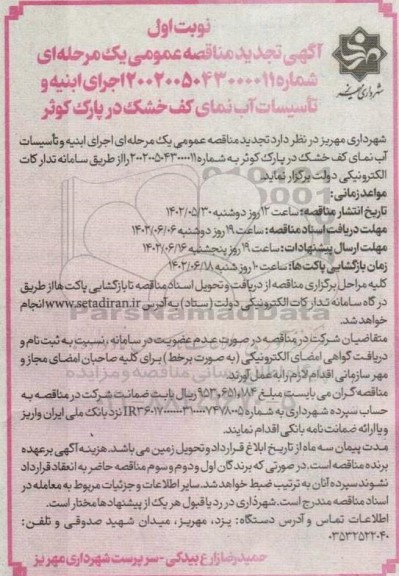 نوبت اول
آگهی تجدید مناقصه عمومی یک مرحله‌ای
شماره ۲۰۰۲۰۰۵۰۴۳۰۰۰۰۱۱ اجرای ابنیه و
تأسیسات آب نمای کف خشک در پارک کوثر
شهرداری مهریز
شهرداری مهریز در نظر دارد تجدید مناقصه عمومی یک مرحله ای اجرای ابنیه و تأسیسات
آب نمای کف خشک در پارک کوثر به شماره ۲۰۰۲۰۰۵۰۴۳۰۰۰۰۱۱ را از طریق سامانه تدارکات
الکترونیکی دولت برگزار نماید.
مواعد زمانی:
تاریخ انتشار مناقصه: ساعت ۱۲ روز دوشنبه ۱۴۰۲/۰۵/۳۰
مهلت دریافت اسناد مناقصه: ساعت ۱۹ روز دوشنبه ۱۴۰۲/۰۶/۰۶
مهلت ارسال پیشنهادات: ساعت ۱۹ روز پنجشنبه ۱۴۰۲/۰۶/۱۶
زمان بازگشایی پاکت ها: ساعت ۱۰ روز شنبه ۱۴۰۲/۰۶/۱۸
کلیه مراحل برگزاری مناقصه از دریافت و تحویل اسناد مناقصه تا بازگشایی پاکت ها از طریق
درگاه سامانه تدارکات الکترونیکی دولت (ستاد) به آدرس www.setadiran.ir انجام
خواهد شد.
متقاضیان شرکت در مناقصه در صورت عدم عضویت در سامانه، نسبت به ثبت نام و
دریافت گواهی امضای الکترونیکی (به صورت برخط) برای کلیه صاحبان امضای مجاز و
مهر سازمانی اقدام لازم را به عمل آورند.
مناقصه گران می بایست مبلغ ۹۵۳،۶۵۱،۷۸۴ ریال بابت ضمانت شرکت در مناقصه به
حساب سپرده شهرداری به شماره نزد بانک ملی ایران واریز
و یا ارائه ضمانت نامه بانکی اقدام نمایند.
مدت پیمان سه ماه از تاریخ ابلاغ قرارداد و تحویل زمین می باشد. هزینه آگهی بر عهده
برنده مناقصه است. در صورتی که برندگان اول و دوم و سوم مناقصه حاضر به انعقاد قرارداد
نشوند سپرده آنان به ترتیب ضبط خواهد شد. سایر اطلاعات و جزئیات مربوط به معامله در
اسناد مناقصه مندرج است. شهرداری در رد یا قبول هر یک از پیشنهادها مختار است.
اطلاعات تماس و آدرس دستگاه: یزد، مهریز، میدان شهید صدوقی و تلفن:
۰۳۵۳۲۵۲۲۰۴۰
حمیدرضا زارع بیدکی - سرپرست شهرداری مهریز
ParsNamadData